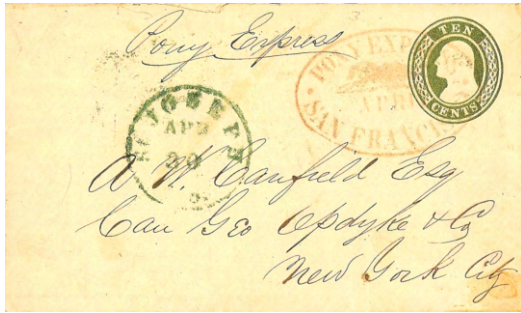 Pony Express
TEN
CENTS
PONY EXP
APRI
SAN FRANCIS
ST JOSEPH
APR
20
A W Canfield Esq
Care Geo Opdyke & Co
New York City